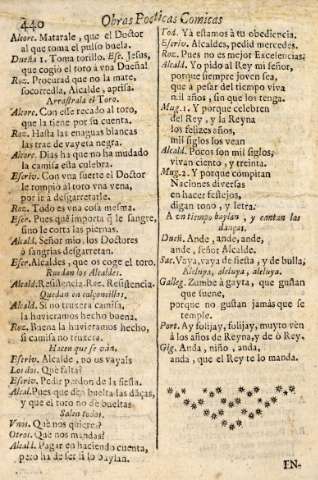 440
Obras Poeticas Comicas
Alcore. Matarale, que el Doctor
al que toma el pulso buela.
Dueña 1. Toma torillo. Ese. Jesus,
que cogiò el toro à vna Dueña!
Roz. Procurad que no la mate,
socorredla, Alcalde, aprisa.
Arrastrala el Toro.
Alcore. Con esse recado al toro,
que la tiene por su cuenta.
Roz. Hasta las enaguas blancas
las trae de vayeta negra.
Alcore. Dias ha que no ha mudado
la camisa esta culebra.
Escriv. Con vna suerte el Doctor
le rompiò al toro vna vena,
por ir à desgarretarle.
Roz. Todo es vna cosa mesma.
Escr. Pues què importa q̃ le sangre,
sino le corta las piernas.
Alcald. Señor mio, los Doctores
à sangrias desgarretan.
Escr. Alcaldes, que os coge el toro.
Ruedan los Alcaldes.
Alcald. Residencia. Roz. Residencia.
Quedan en calçoncillos.
Alcald. Si no truxera camisa,
la huvieramos hecho buena.
Roz. Buena la huvieramos hecho,
si camisa no truxera.
Hacen que se vàn.
Escriv. Alcalde, no us vayais
Los dos. Què falta?
Escriv. Pedir perdon de la fiesta.
Alcal. Pues que den buelta las dãças,
y que el toro no dè bueltas.
Salen todos.
Vnos. Què nos quiere?
Otros. Què nos mandas?
Alcald. Pagar en haciendo cuenta,
pero ha de ser si lo baylan.
Tod. Yà estamos à tu obediencia.
Escriv. Alcaldes, pedid mercedes.
Roz. Pues no es mejor Excelencias?
Alcald. Yo pido al Rey mi señor,
porque siempre joven sea,
que à pesar del tiempo viva
mil años, sin que los tenga.
Mug. 1. Y porque celebren
del Rey, y la Reyna
los felizes años,
mil siglos los vean
Alcald. Pocos son mil siglos,
vivan ciento, y treinta.
Mug. 2. Y porque compitan
Naciones diversas
en hacer festejos,
digan tono, y letra.
A en tiempo baylan, y cantan las
danças.
Dueñ. Ande, ande, ande,
ande, señor Alcalde.
Sac. Vaya, vaya de fiesta, y de bulla,
Aleluya, aleluya, aleluya.
Galleg. Zumbe à gayta, que gustan
que suene,
porque no gustan jamàs que se
temple.
Port. Ay fosijay, fosijay, muyto vèn
à los años de Reyna, y de ò Rey.
Gig. Anda, niño, anda,
anda, que el Rey te lo manda.
EN-